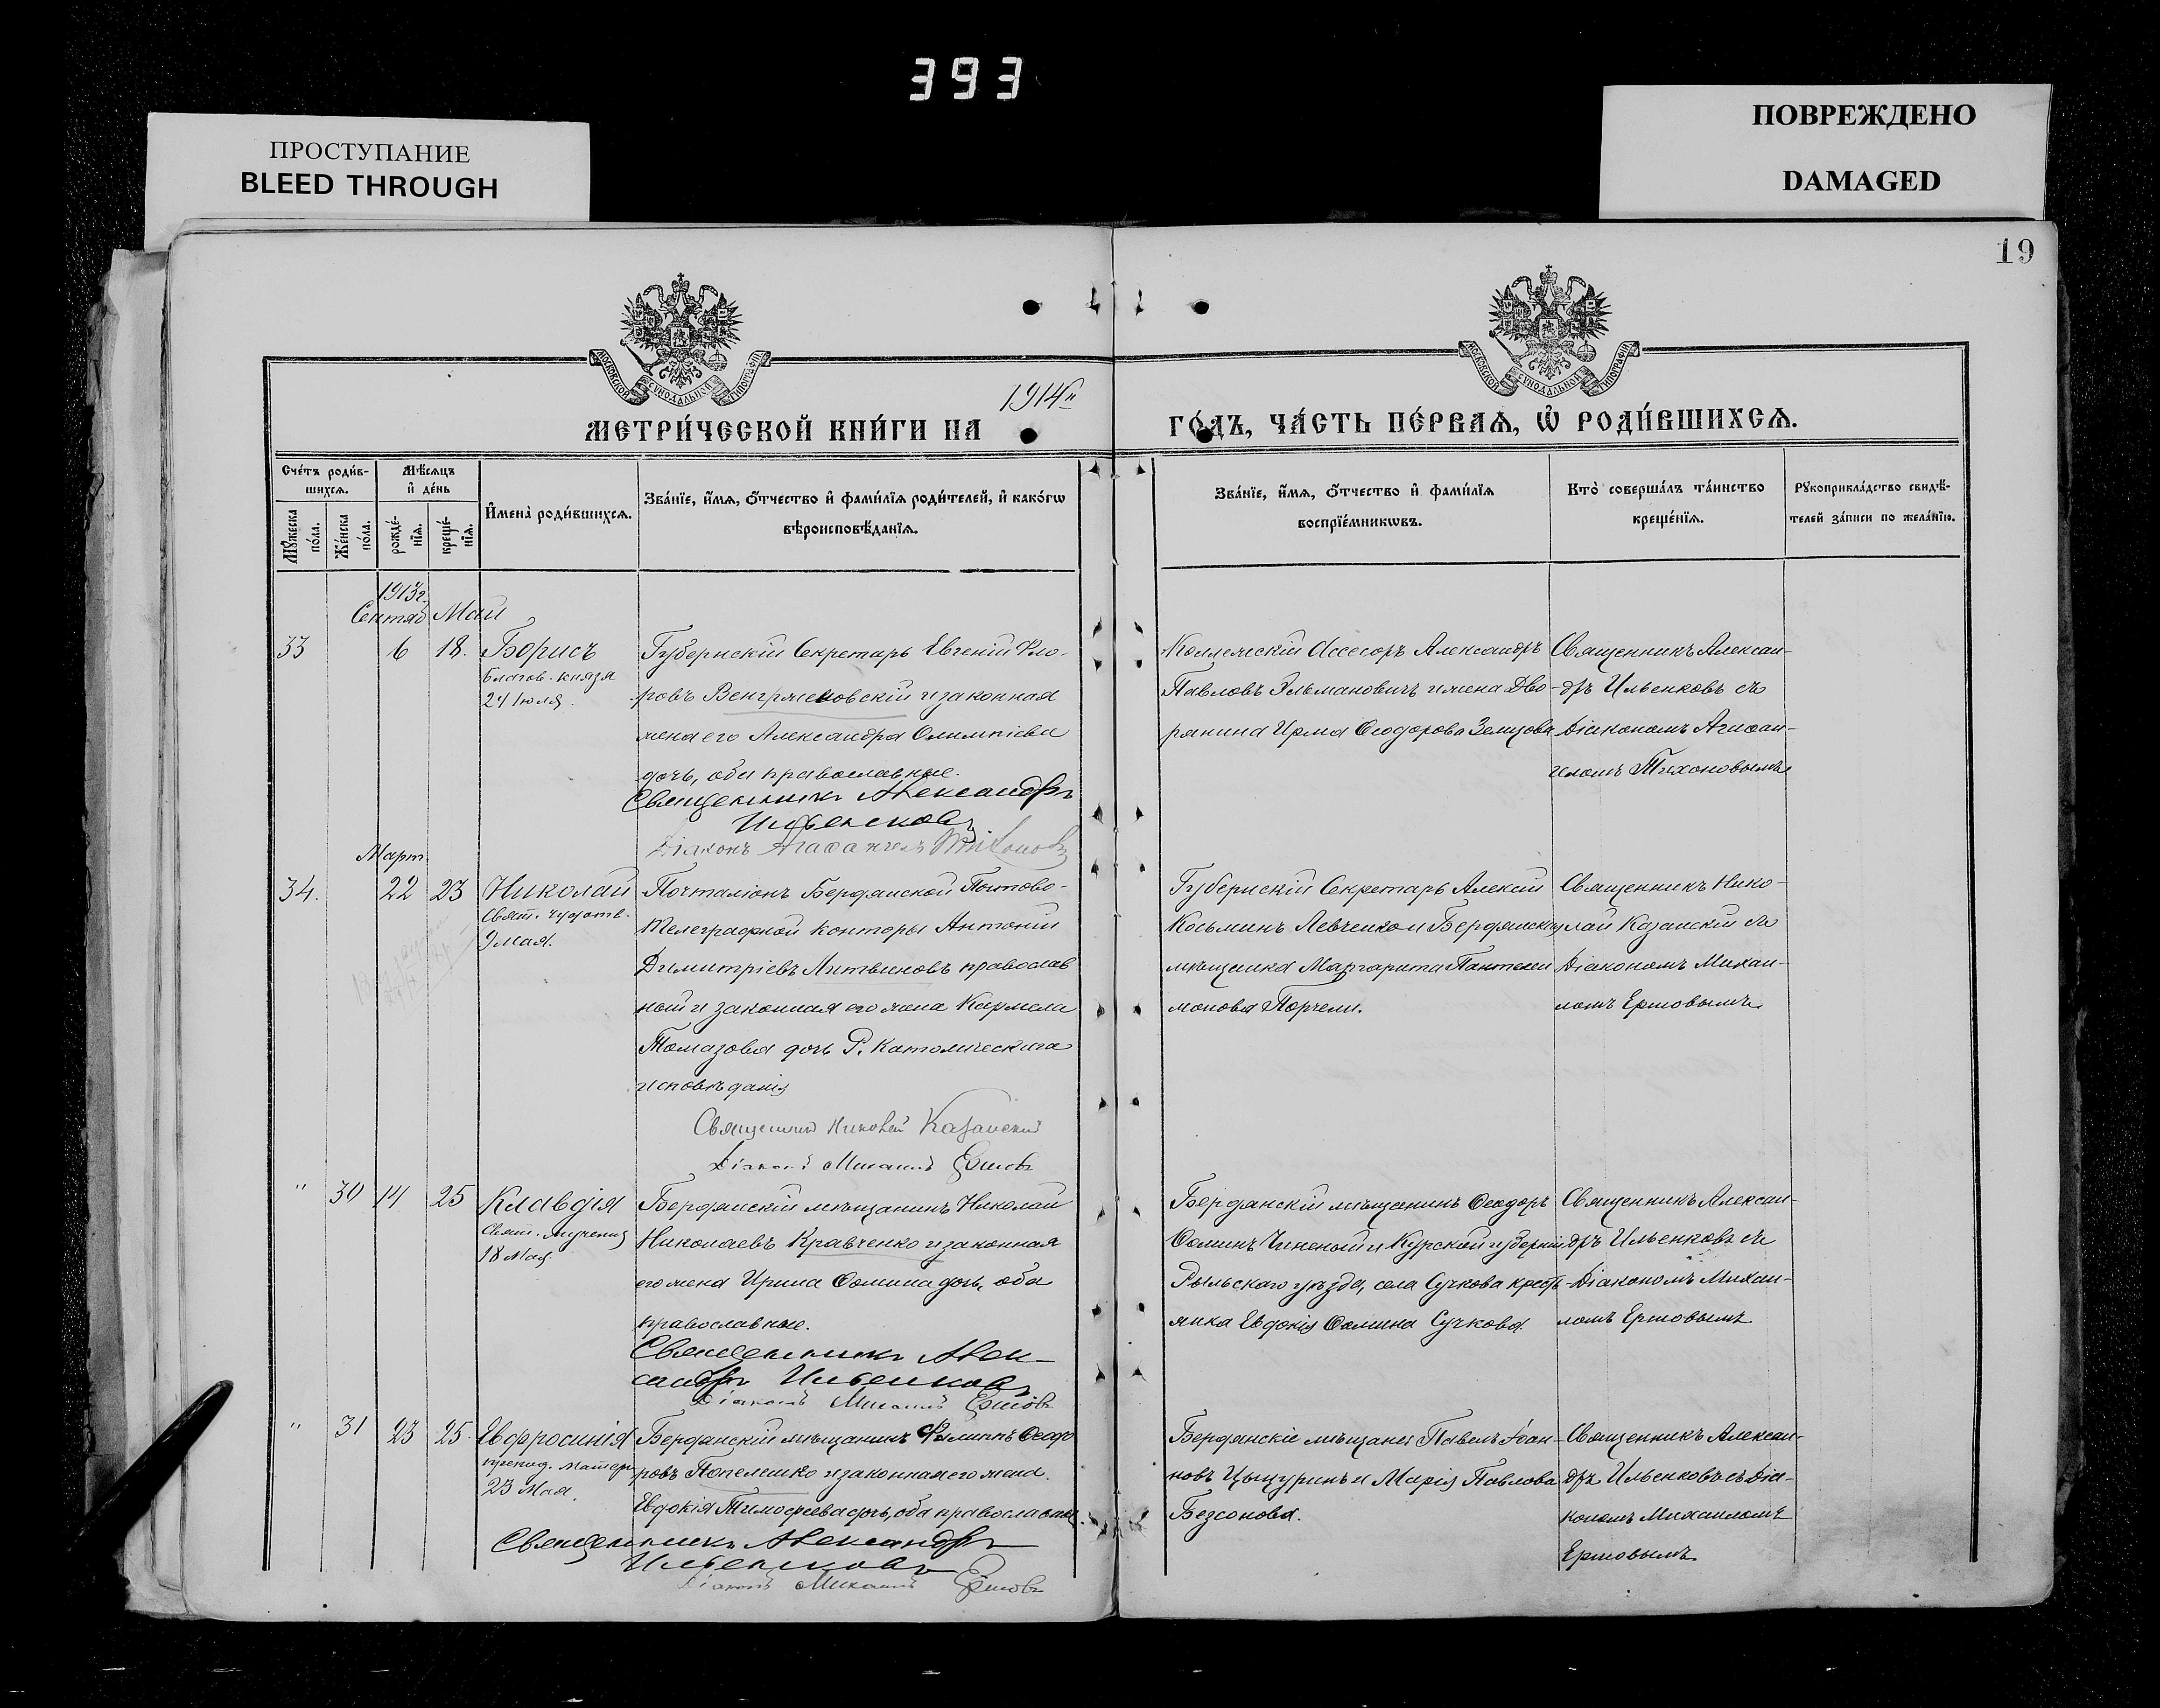 393
ПРОСТУПАНИЕ
BLEED THROUGH
ПОВРЕЖДЕНО
DAMAGED
19
МОСКОВСКОЙ СУНОДАЛЬНОЙ ТИПОГРАФІИ
МОСКОВСКОЙ СУНОДАЛЬНОЙ ТИПОГРАФІИ
МЕТРИ́ЧЕСКОЙ КНИ́ГИ НА 1914й ГО́ДЪ, ЧА́СТЬ ПЕ́РВАѦ, Ѡ҆ РОДИ́ВШИХСѦ.
Сче́тъ роди́в-
шихсѧ.
Мꙋ́жеска по́ла.
Же́нска по́ла.
Мѣ́сѧцъ
и҆ де́нь
рожде́-
нїѧ.
креще́-
нїѧ.
И҆мена̀ роди́вшихсѧ.
Зва́нїе, и҆́мѧ, ѻ҆́тчество и҆ фами́лїѧ роди́телей, и҆ како́гѡ
вѣроисповѣ́данїѧ.
Зва́нїе, и҆́мѧ, ѻ҆́тчество и҆ фами́лїѧ
воспрїе́мникѡвъ.
Кто̀ соверша́лъ та́инство
креще́нїѧ.
Рꙋкоприкла́дство свидѣ́-
телей за́писи по жела́нїю.
1913г.
Сентяб Май
33 6 18. Борисъ
благов. князя
24 Іюля.
Губернскій Секретарь Евгеній Фло-
ровъ Венгрженовскій и законная
жена его Александра Олимпіева
дочь, оба православные.
Священникъ Александръ
Ильенковъ
Діаконъ Агаѳангелъ Тихоновъ
Коллежскій Ассесоръ Александръ
Павловъ Эльмановичъ и жена Дво-
рянина Ирма Ѳеодорова Земцова
Священникъ Алексан-
дръ Ильенковъ съ
Діакономъ Агаѳан-
геломъ Тихоновымъ
Март
34. 22 23 Николай
Свят. чудотв.
9 мая.
Почталіонъ Бердянской Почтово-
Телеграфной конторы Антоній
Димитріевъ Литвиновъ православ
ный и законная его жена Кармела
Томазова дочь Р. Католическаго
исповѣданія
Священникъ Николай Казанскій
Діаконъ Михаилъ Ершовъ
Губернскій Секретарь Алексій
Косьминъ Левченко и Бердянская
мѣщанка Маргарита Пантелеи
монова Порчели.
Священникъ Нико-
лай Казанскій съ
Діакономъ Михаи-
ломъ Ершовымъ
" 30 14 25 Клавдія
Свят. мученица
18 Мая
Бердянскій мѣщанинъ Николай
Николаевъ Кравченко и законная
его жена Ирина Ѳомина дочь, оба
православные.
Священникъ Алек-
сандръ Ильенковъ
Діаконъ Михаилъ Ершовъ
Бердянскій мѣщанинъ Ѳеодоръ
Ѳоминъ Чиненый и Курской губерніи
Рыльскаго уѣзда, села Сучкова кресть-
янка Евдокія Ѳомина Сучкова
Священникъ Алексан-
дръ Ильенковъ съ
Діакономъ Михаи-
ломъ Ершовымъ
" 31 23 25. Евфросинія
препод. матери
23 Мая.
Бердянскій мѣщанинъ Филиппъ Ѳеодо
ровъ Попелешко и законная его жена
Евдокія Тимофеева дочь, оба православны
Священникъ Александръ
Ильенковъ
Діаконъ Михаилъ Ершовъ
Бердянскіе мѣщане Павелъ Іоан-
новъ Цыцуринъ и Марія Павлова
Безсонова.
Священникъ Алексан-
дръ Ильенковъ съ Діа-
кономъ Михаиломъ
Ершовымъ